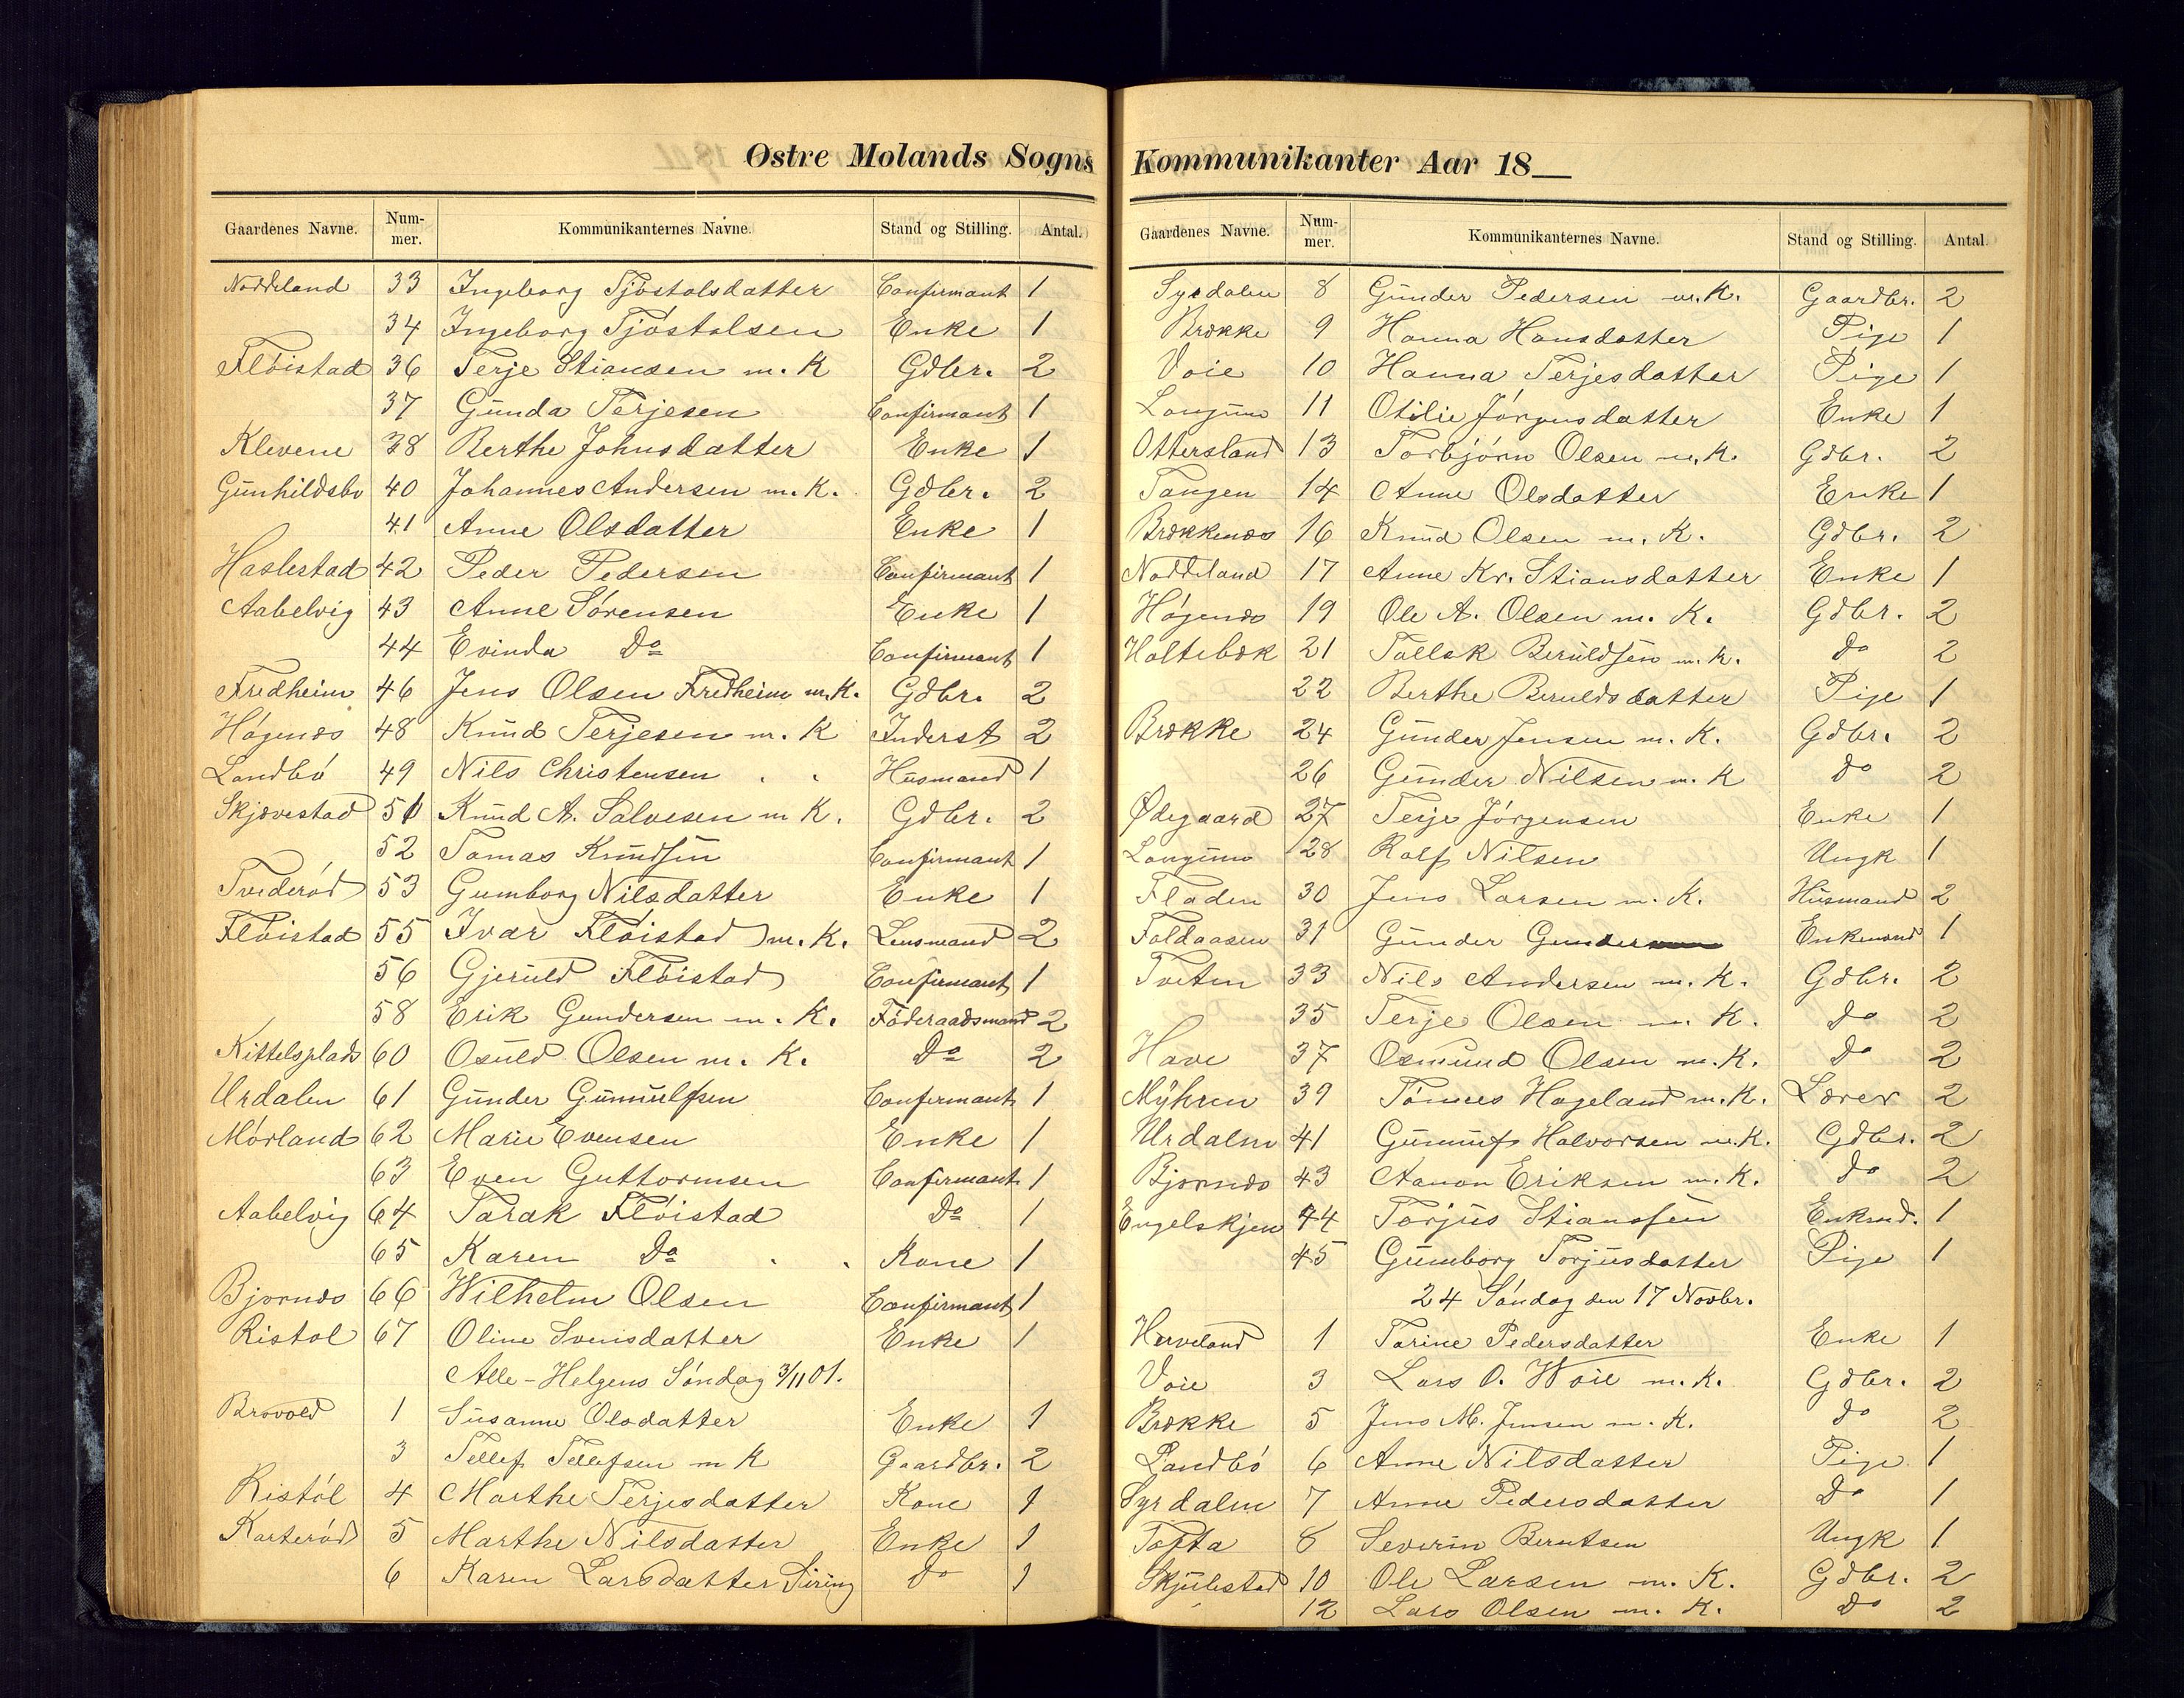 Østre Molands Sogns
Gaardenes Navne. Num-mer. Kommunikanternes Navne. Stand og Stilling. Antal.
Noddeland 33 Ingeborg Tjøstolsdatter Confirmant 1
34 Ingeborg Tjøstolsen Enke 1
Fløistad 36 Terje Stiansen m. K Gdbr. 2
37 Gunda Terjesen Confirmant 1
Klevene 38 Berthe Johnsdatter Enke 1
Gunhildsbu 40 Johannes Andersen m. K. Gdbr. 2
41 Anne Olsdatter Enke 1
Haslestad 42 Peder Pedersen Confirmant 1
Aabelvig 43 Anne Sørensen Enke 1
44 Evinda Do Confirmant 1
Fredheim 46 Jens Olsen Fredheim m. K. Gdbr. 2
Høgenæs 48 Knud Terjesen m. K Inderst 2
Landbø 49 Nils Christensen . . Husmand 1
Skjævestad 51 Knud A. Salvesen m K. Gdbr. 2
52 Tomas Knudsen Confirmant 1
Tvederød 53 Gumborg Nilsdatter Enke 1
Fløistad 55 Ivar Fløistad m. K. Lensmand 2
56 Gjeruld Fløistad Confirmant 1
58 Erik Gundersen m. K. Føderaadsmand 2
Kittelsplads 60 Osuld Olsen m. K. Do 2
Urdalen 61 Gunder Gunnulfsen Confirmant 1
Mørland 62 Marie Evensen Enke 1
63 Even Guttormsen Confirmant 1
Aabelvig 64 Tarak Fløistad Do 1
65 Karen Do . . Kone 1
Bjørnæs 66 Wilhelm Olsen Confirmant 1
Ristøl 67 Oline Svensdatter Enke 1
Alle-Helgens Søndag 3/11 01.
Brovold 1 Susanne Olsdatter Enke 1
3 Tellef Tellefsen m K Gaardbr. 2
Ristøl 4 Marthe Terjesdatter Kone 1
Karterød 5 Marthe Nilsdatter Enke 1
6 Karen Larsdatter Siring Do 1
Kommunikanter Aar 18
Gaardenes Navne. Num-mer. Kommunikanternes Navne. Stand og Stilling. Antal.
Syrdalen 8 Gunder Pedersen m. K. Gaardbr. 2
Brække 9 Hanna Hansdatter Pige 1
Voie 10 Hanna Terjesdatter Pige 1
Longum 11 Otilie Jørgensdatter Enke 1
Ottersland 13 Torbjørn Olsen m. K. Gdbr. 2
Tangen 14 Anne Olsdatter Enke 1
Brækkenæs 16 Knud Olsen m. K. Gdbr. 2
Noddeland 17 Anne Kr. Stiansdatter Enke 1
Høgenæs 19 Ole A. Olsen m. K. Gdbr. 2
Holtebæk 21 Tallak Beruldsen m. K. Do 2
22 Berthe Beruldsdatter Pige 1
Brække 24 Gunder Jensen m. K. Gdbr. 2
26 Gunder Nilsen m. K Do 2
Ødegaard 27 Terje Jørgensen Enke 1
Longum 28 Rolf Nilsen Ungk 1
Fladen 30 Jens Larsen m. K. Husmand 2
Foldaasen 31 Gunder Gunder Enkemand 1
Tveten 33 Nils Andersen m. K. Gdbr. 2
35 Terje Olsen m. K. Do 2
Have 37 Osmund Olsen m. K. Do 2
Myhren 39 Tønnes Hageland m. K. Lærer 2
Urdalen 41 Gunnuf Halvorsen m. K. Gdbr. 2
Bjørnæs 43 Aanon Eriksen m. K. Do 2
Engelskjen 44 Torjus Stiansen Enkmd. 1
45 Gumborg Torjusdatter Pige 1
24 Søndag den 17 Novbr.
Herveland 1 Tarine Pedersdatter Enke 1
Voie 3 Lars O. Woie m. K. Gdbr. 2
Brække 5 Jens M. Jensen m. K. Do 2
Landbø 6 Anne Nilsdatter Pige 1
Syrdalen 7 Anne Pedersdatter Do 1
Tofta 8 Severin Berntsen Ungk 1
Skjulestad 10 Ole Larsen m. K. Gdbr. 2
12 Lars Olsen m. K. Do 2